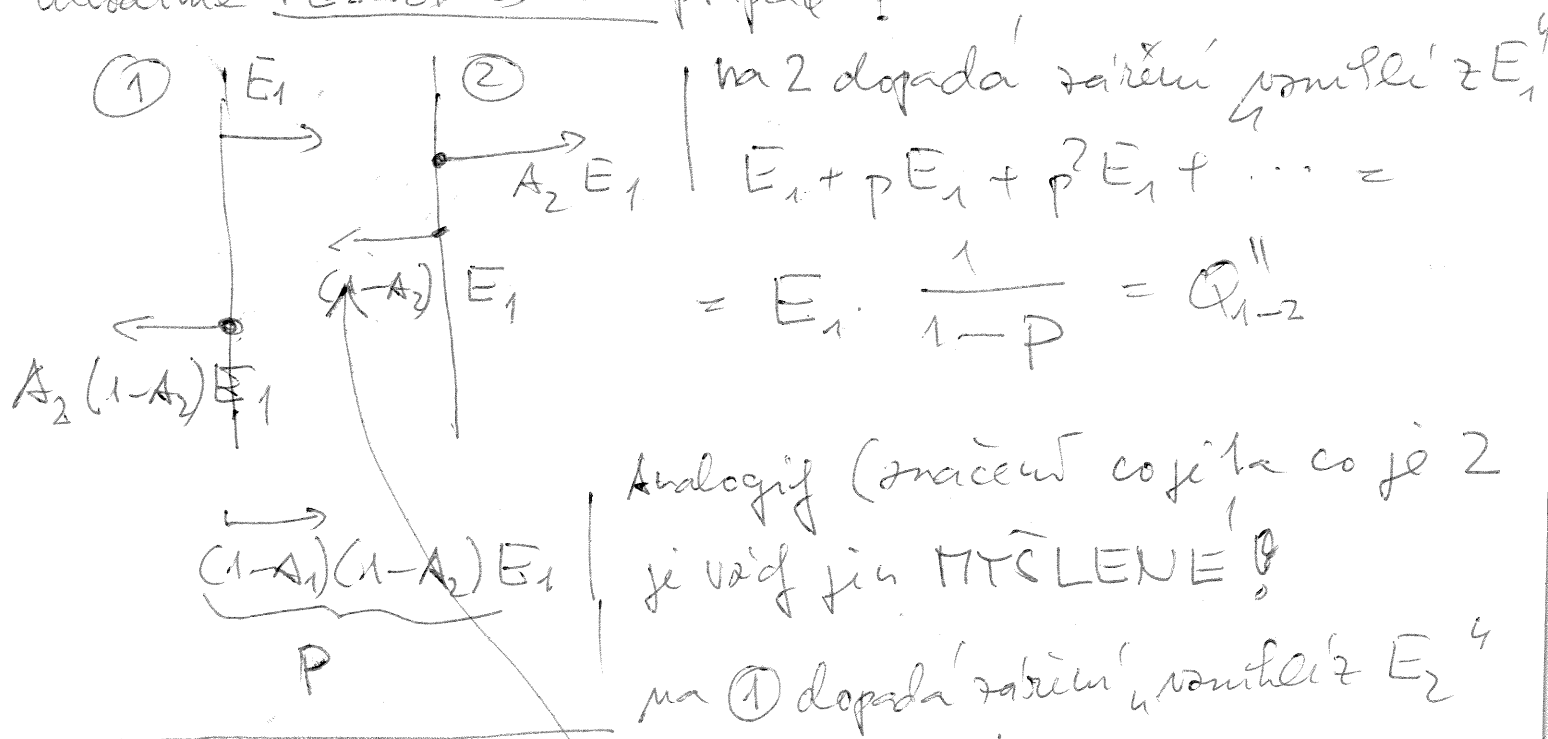 ① E₁ ②
A₂ E₁
(1-A₂) E₁
A₂ (1-A₂) E₁
(1-A₁)(1-A₂) E₁
P
na 2 dopadá záření „vzniklé z E₁“
E₁ + pE₁ + p²E₁ + ... =
= E₁ · 1/(1-p) = Q″₁₋₂
Analogicky (značení co je 1 a co je 2
je vždy jen MYŠLENÉ!
na ① dopadá záření „vzniklé z E₂“